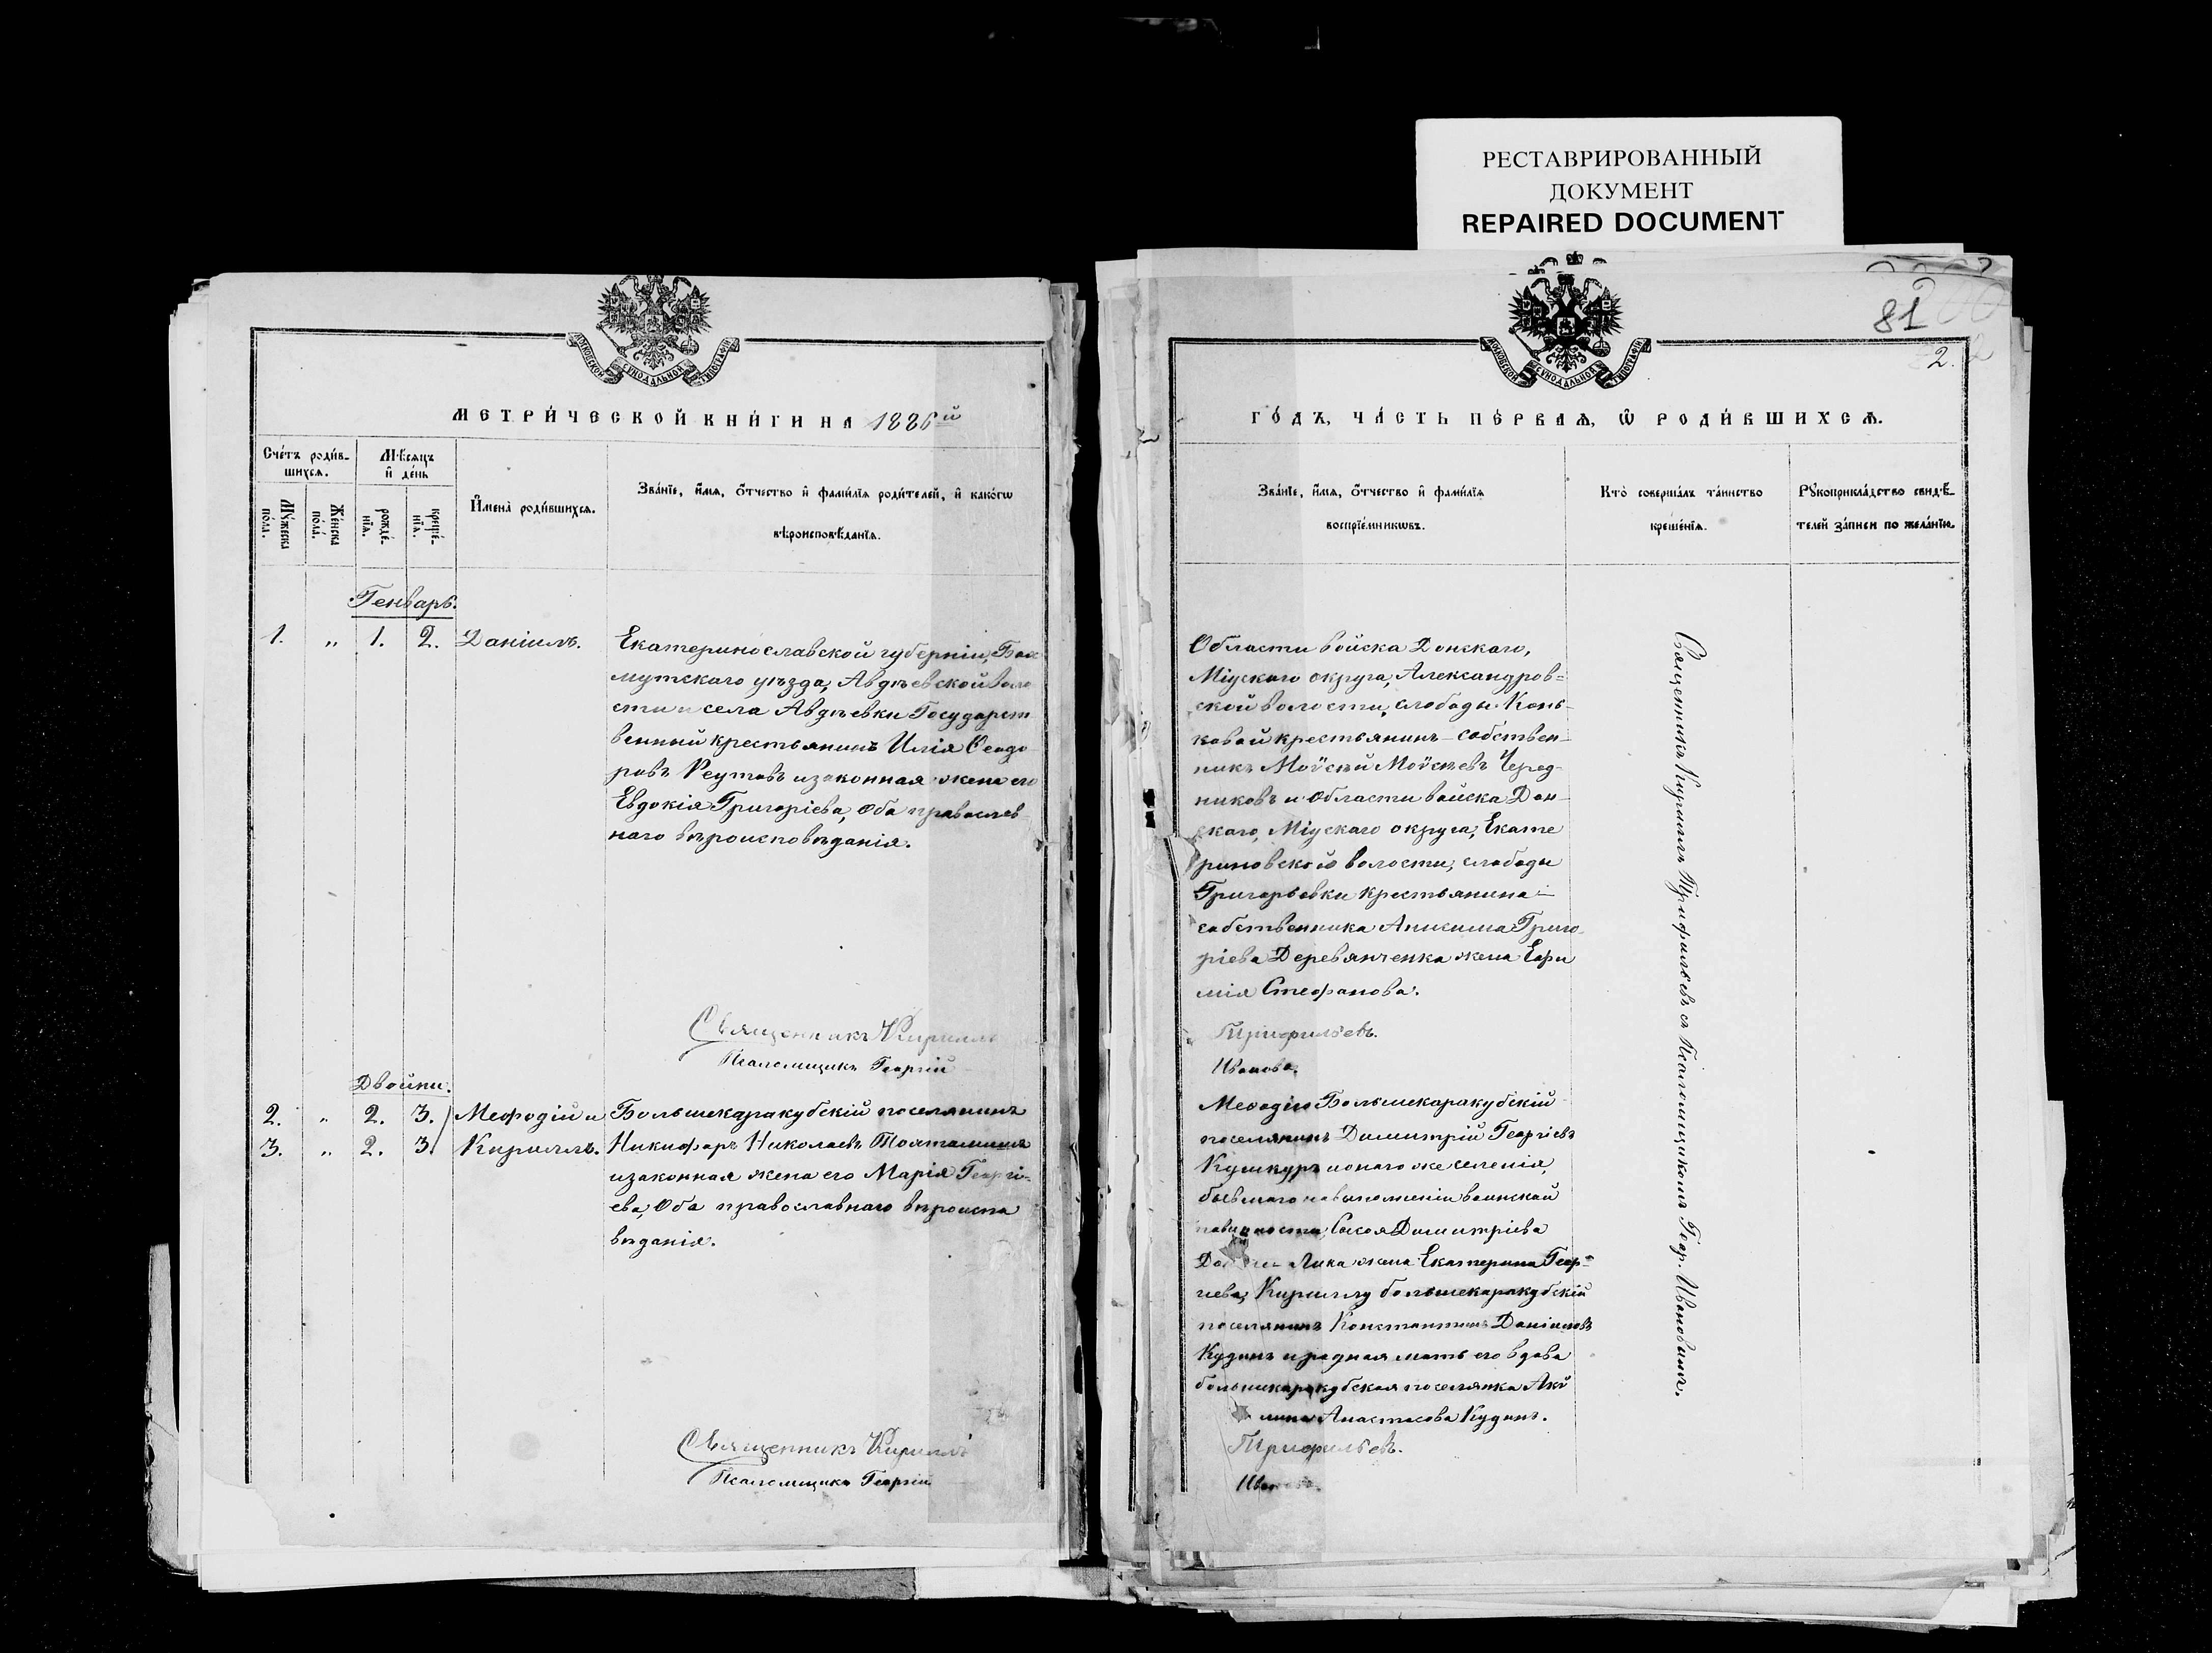 РЕСТАВРИРОВАННЫЙ
ДОКУМЕНТ
REPAIRED DOCUMENT
МОСКОВСКОЙ СУНОДАЛЬНОЙ ТИПОГРАФІИ
МЕТРИ́ЧЕСКОЙ КНИ́ГИ НА 1886й
Сче́тъ роди́в-
шихсѧ.
Мѣ́сѧцъ
и҆ де́нь
Мꙋ́жеска
по́ла.
Же́нска
по́ла.
рожде́-
нїѧ.
креще́-
нїѧ.
И҆мена̀ роди́вшихсѧ.
Зва́нїе, и҆́мѧ, ѻ҆́тчество и҆ фами́лїѧ роди́телей, и҆ како́гѡ
вѣроисповѣ́данїѧ.
Генварь.
1. „ 1. 2. Даніилъ.
Екатеринославской губерніи, Бах
мутскаго уѣзда, Авдѣевской воло
сти и села Авдѣевки Государст
венный крестьянинъ Илія Ѳеодо
ровъ Реутовъ и законная жена его
Евдокія Григоріева, Оба православ
наго вѣроисповѣданія.
Священникъ Кириллъ
Псаломщикъ Георгій
Двойни.
2. „ 2. 3. Меѳодій и
3. „ 2. 3. Кириллъ.
Большекаракубскій поселянинъ
Никифоръ Николаевъ
и законная жена его Марія Георгі-
ева, Оба православнаго вѣроиспо
вѣданія.
Священникъ Кириллъ
Псаломщикъ Георгій
81
2.
МОСКОВСКОЙ СУНОДАЛЬНОЙ ТИПОГРАФІИ
ГО́ДЪ, ЧА́СТЬ ПЕ́РВАѦ, Ѡ҆ РОДИ́ВШИХСѦ.
Зва́нїе, и҆́мѧ, ѻ҆́тчество и҆ фами́лїѧ
воспрїе́мникѡвъ.
Кто̀ соверша́лъ та́инство
креще́нїѧ.
Рꙋкоприкла́дство свидѣ́-
телей за́писи по жела́нїю.
Области войска Донскаго,
Міускаго округа, Александров=
ской волости, слободы Конь-
ковой крестьянинъ-собствен-
никъ Моѵсей Моѵсеевъ Черед-
никовъ и Области войска Дон-
скаго, Міускаго округа, Екате
риновской волости, слободы
Григорьевки крестьянина-
собственника Анисима Григо-
ріева Деревянченка жена Евфи
мія Стефанова.
Трифильевъ.
Ивановъ.
Меѳодію Большекаракубскій
поселянинъ Димитрій Георгіевъ
Кушкуръ и онаго же селенія,
бывшаго на выполненіи воинской
повинности Саввы Димитріева
жена Екатерина Геор-
гіева, Кириллу большекаракубскій
поселянинъ Константинъ Даніиловъ
Кудинъ и родная мать его вдова
большекаракубская поселянка Аки
лина Анастасова Кудинъ.
Трифильевъ.
Ивановъ.
Священникъ Кириллъ Трифильевъ съ Псаломщикомъ Геор. Ивановымъ.